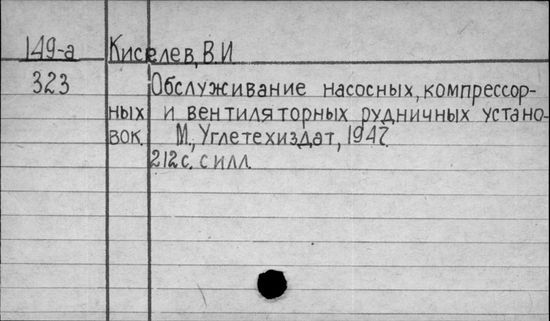 149-а Киселев, В.И
323 Обслуживание насосных, компрессор-
ных и вентиляторных рудничных устано-
вок. М., Углетехиздат, 1947.
212 с. с илл.